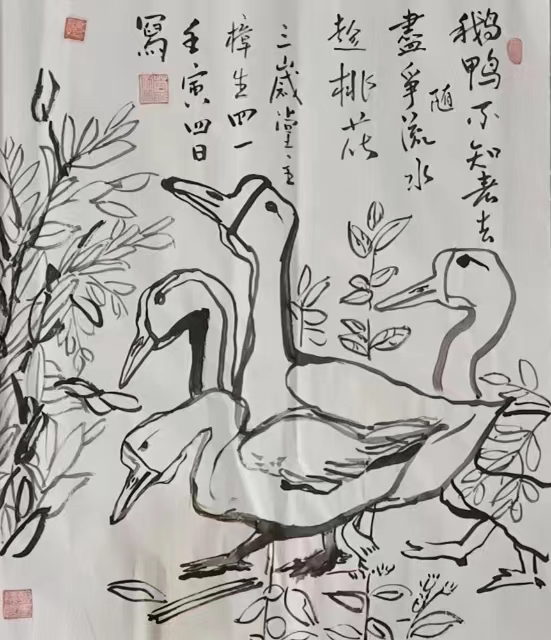 鵝鴨不知春去
随
盡爭流水
趁桃花
三歲堂主
樟生四一
壬寅四日
寫